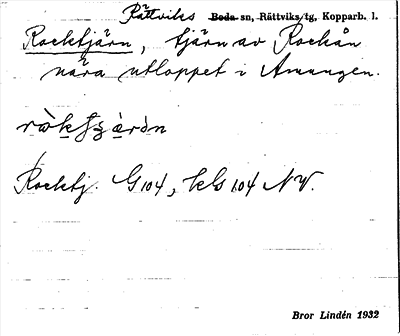 Rättviks Boda sn, Rättviks tg, Kopparb. l.
Rocktjärn, tjärn av Rockån
nära utloppet i Amungen.
Rocktj. G104, kbs 104 NV.
Bror Lindén 1932